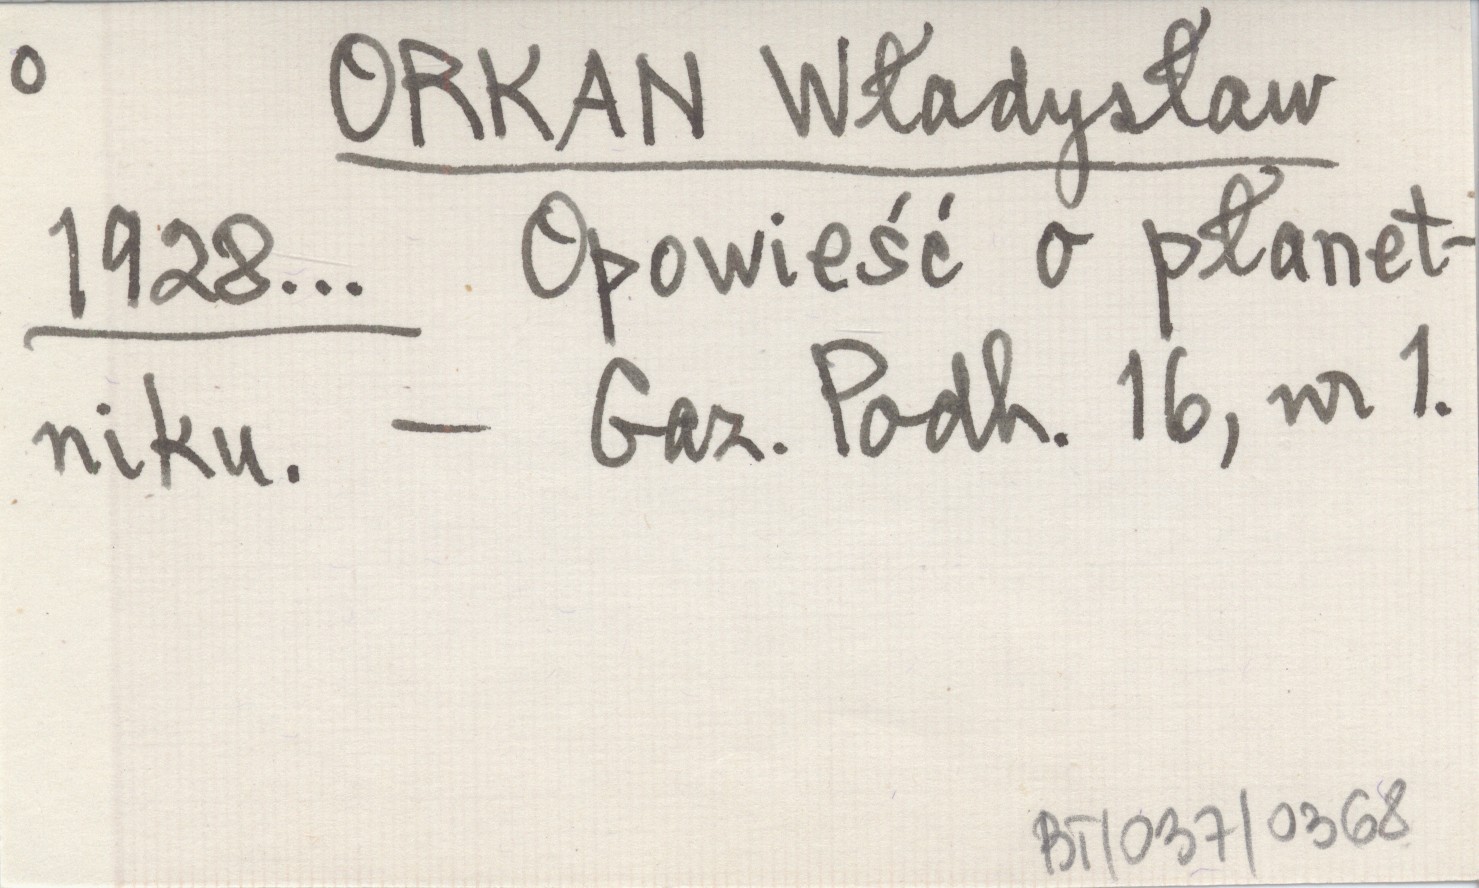 o ORKAN Władysław
1928... Opowieść o płanet-
niku. — Gaz. Podh. 16, nr 1.
BT/037/0368